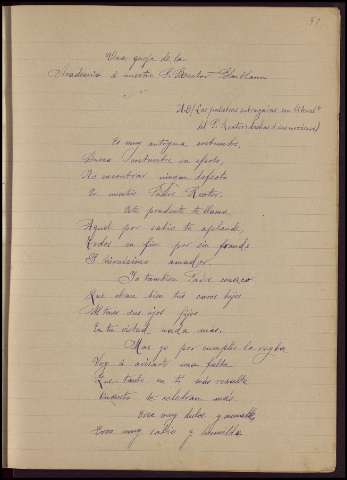 51
Una queja de la
Academia á nuestro P. Rector
N.B/ Las palabras subrayadas son
del P. Rector
Es muy antigua costumbre,
Buena costumbre en efecto,
No encontrar ningun defecto
En nuestro Padre Rector.
Este prudente te llama,
Aquel por sabio te aplaude,
Todos en fin por sin fraude
Y finísimo amador.
Yo tambien Padre conozco
Que obran bien tus caros hijos
Al tener sus ojos fijos
En tu virtud, nada mas.
Mas yo por cumplir la regla
Voy á avisarte una falta
Que tanto en ti más resalta
Cuanto te celebran más.
Eres muy dulce y
Eres muy sabio y humilde